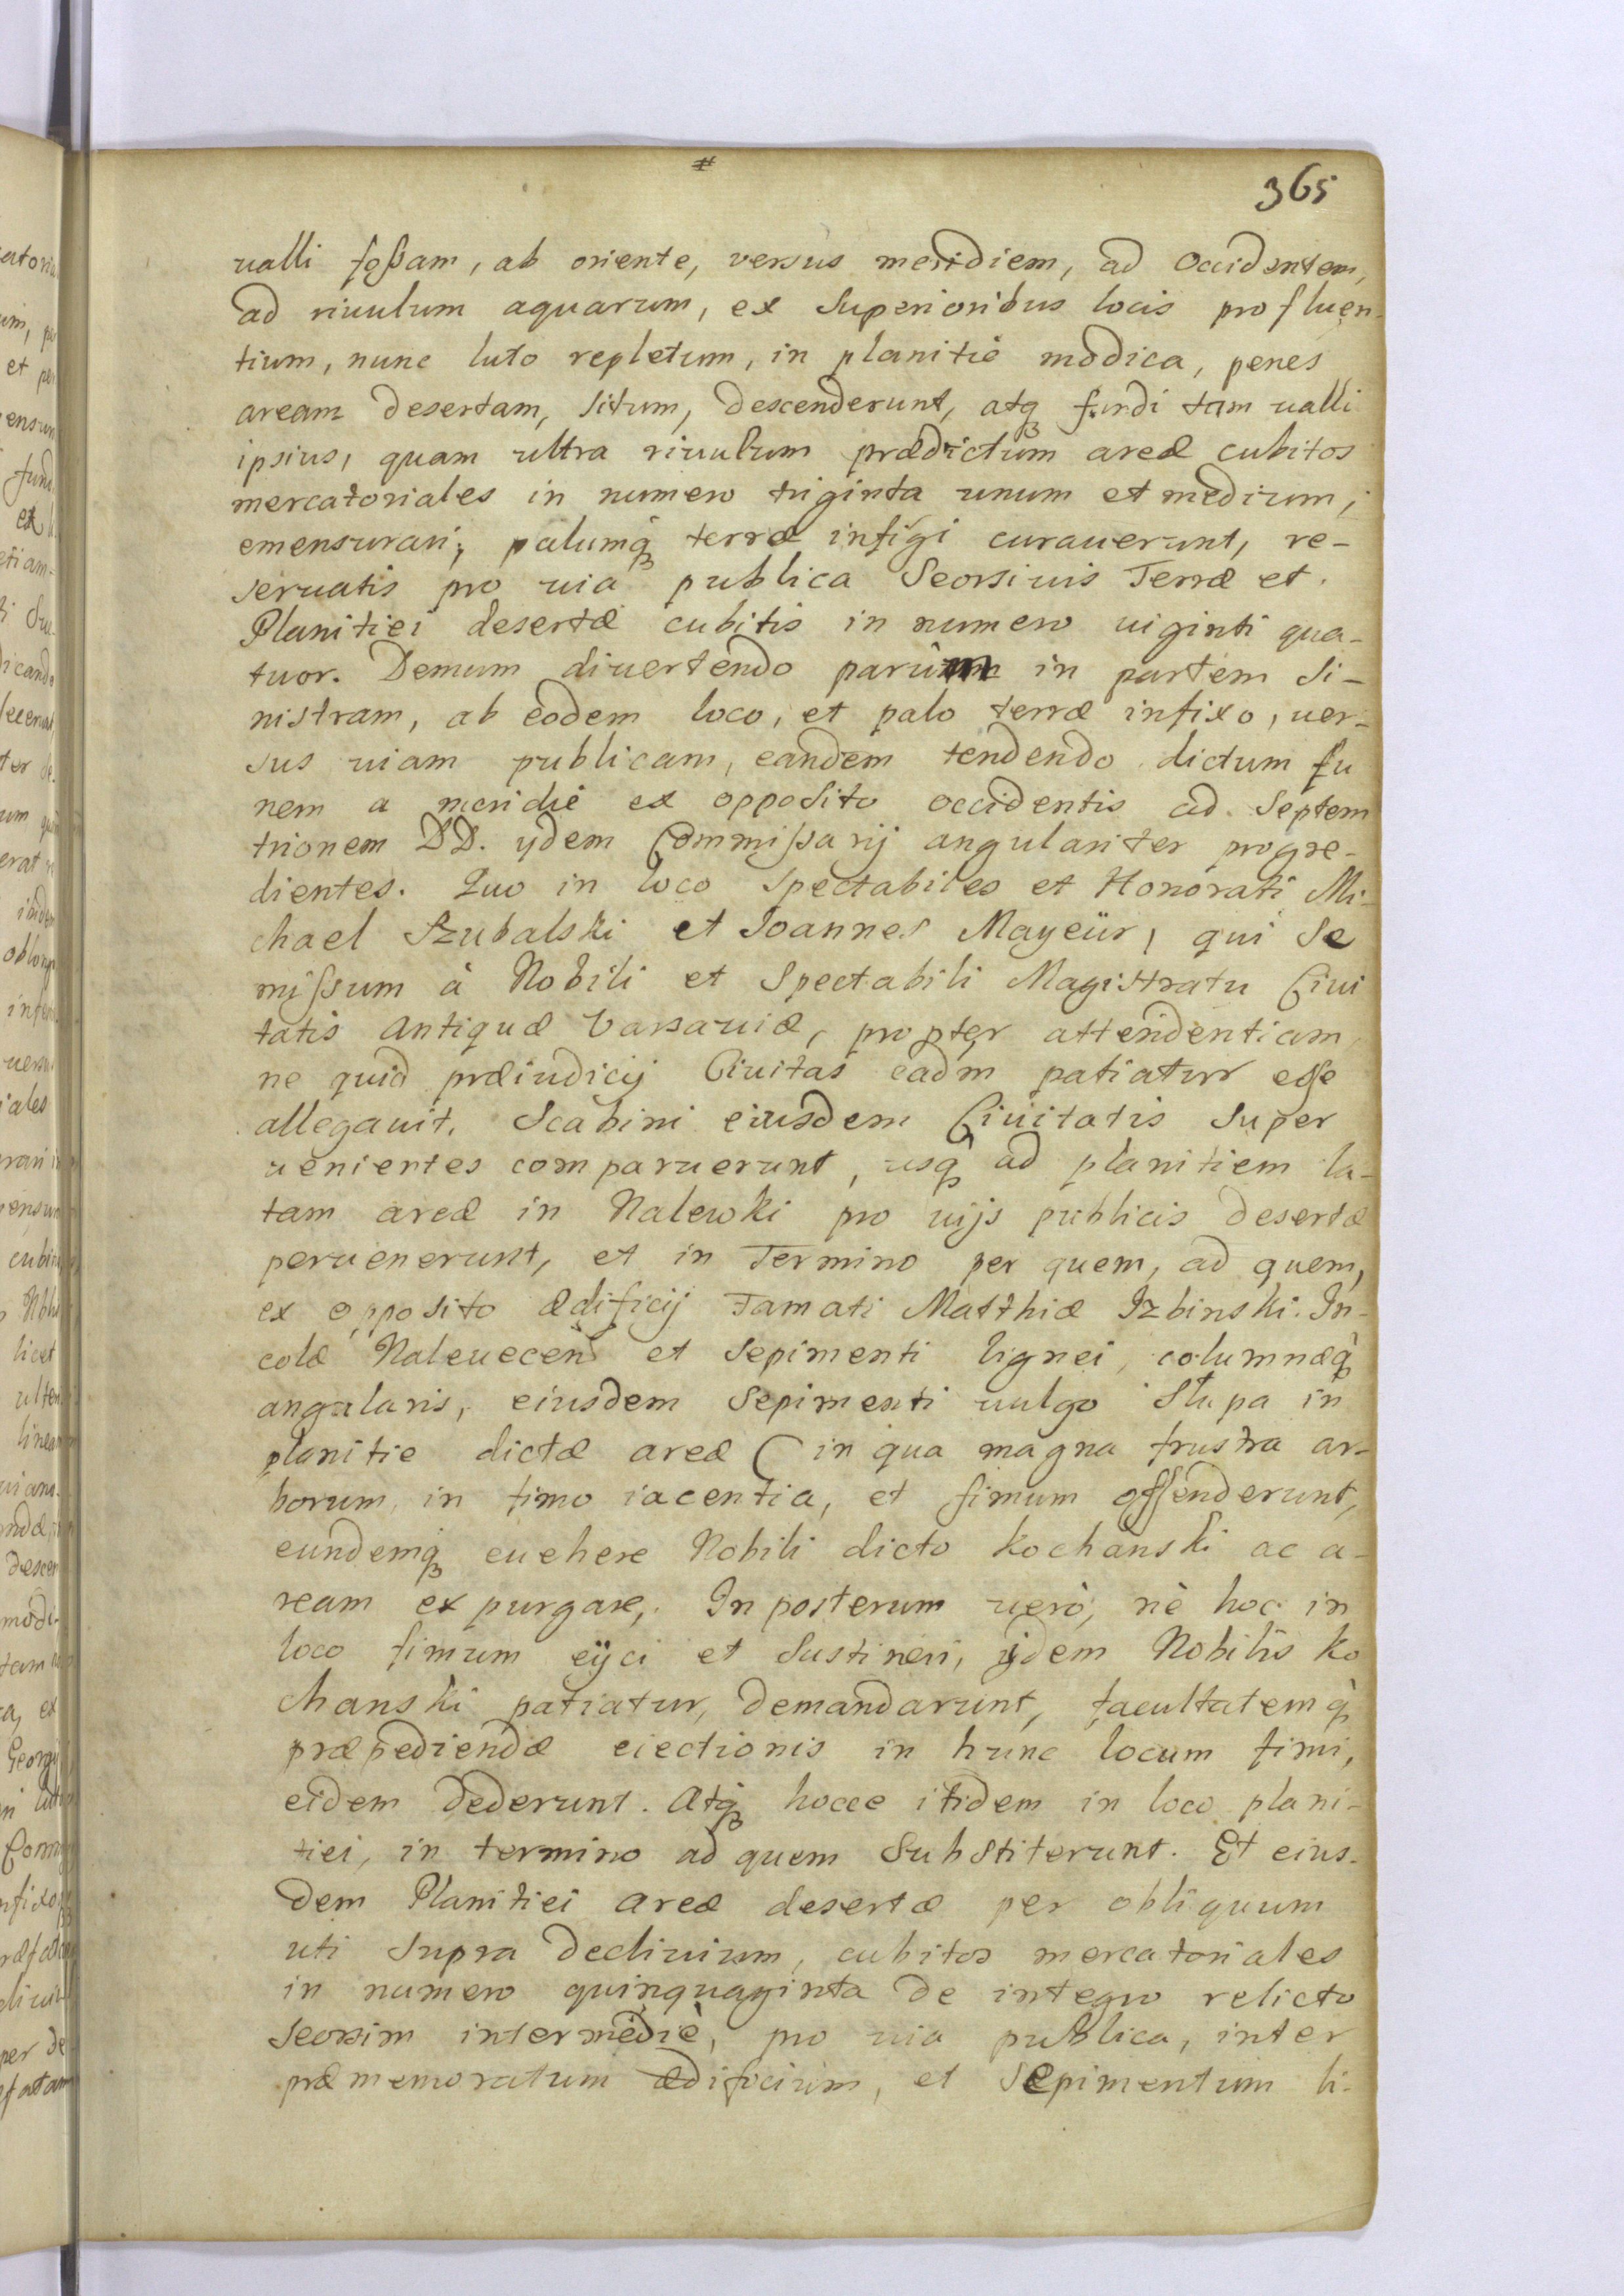 365
ualli foßam, ab oriente, versus meridiem, ad Occidentem,
ad riuulum aquarum, ex Superioribus locis profluen-
tium, nunc luto repletum, in planitie modica, penes
aream desertam, Situm, descenderunt, atq fundi tam ualli
ipsius, quam ultra riuulum prædictum areæ cubitos
mercatoriales in numero triginta unum et medium,
emensurari, palumq terræ infigi curauerunt, re-
seruatis pro uia publica Seorsiuis Terræ et
Planitiei desertæ cubitis in numero uiginti qua-
tuor. Demum diuertendo parum in partem Si-
nistram, ab eodem loco, et palo terræ infixo, uer-
sus uiam publicam, eandem tendendo dictum fu
nem a meridie ex opposito occidentis ad Septem
trionem DD. ydem Commißarij angulariter progre-
dientes. Quo in loco Spectabiles et Honorati Mi-
chael Szubalski et Joannes Mayeür, qui Se
mißum à Nobili et Spectabili Magistratu Ciui
tatis Antiquæ Varsauiæ, propter attendentiam,
ne quid præiudicij Ciuitas eadm patiatur esse
allegauit. Scabini eiusdem Ciuitatis Super
uenientes comparuerunt, usq ad planitiem la-
tam areæ in Nalewki pro uijs publicis desertæ
peruenerunt, et in Termino per quem, ad quem,
ex opposito ædificij Famati Matthiæ Izbinski. In-
colæ Naleuecen et Sepimenti lignei, columnæq
angularis, eiusdem Sepimenti uulgo Słupa in
planitie dictæ areæ ( in qua magna frustra ar-
borum in fimo iacentia, et fimum offenderunt,
eundemq euehere Nobili dicto Kochanski ac a-
ream expurgare, In posterum uerò, nè hoc in
loco fimum eÿci et Sustineri, ydem Nobilis Ko
chanski patiatur, demandarunt, facultatemq
præpediendæ eiectionis in hunc locum fimi,
eidem dederunt. Atq hocce itidem in loco plani-
tiei, in termino ad quem Substiterunt. Et eius-
dem Planitiei areæ desertæ per obliquum
uti Supra decliuium, cubitos mercatoriales
in numero quinquaginta de integro relicto
Seorsim intermediè, pro uia publica, inter
præmemoratum ædificium, et Sepimentum li-